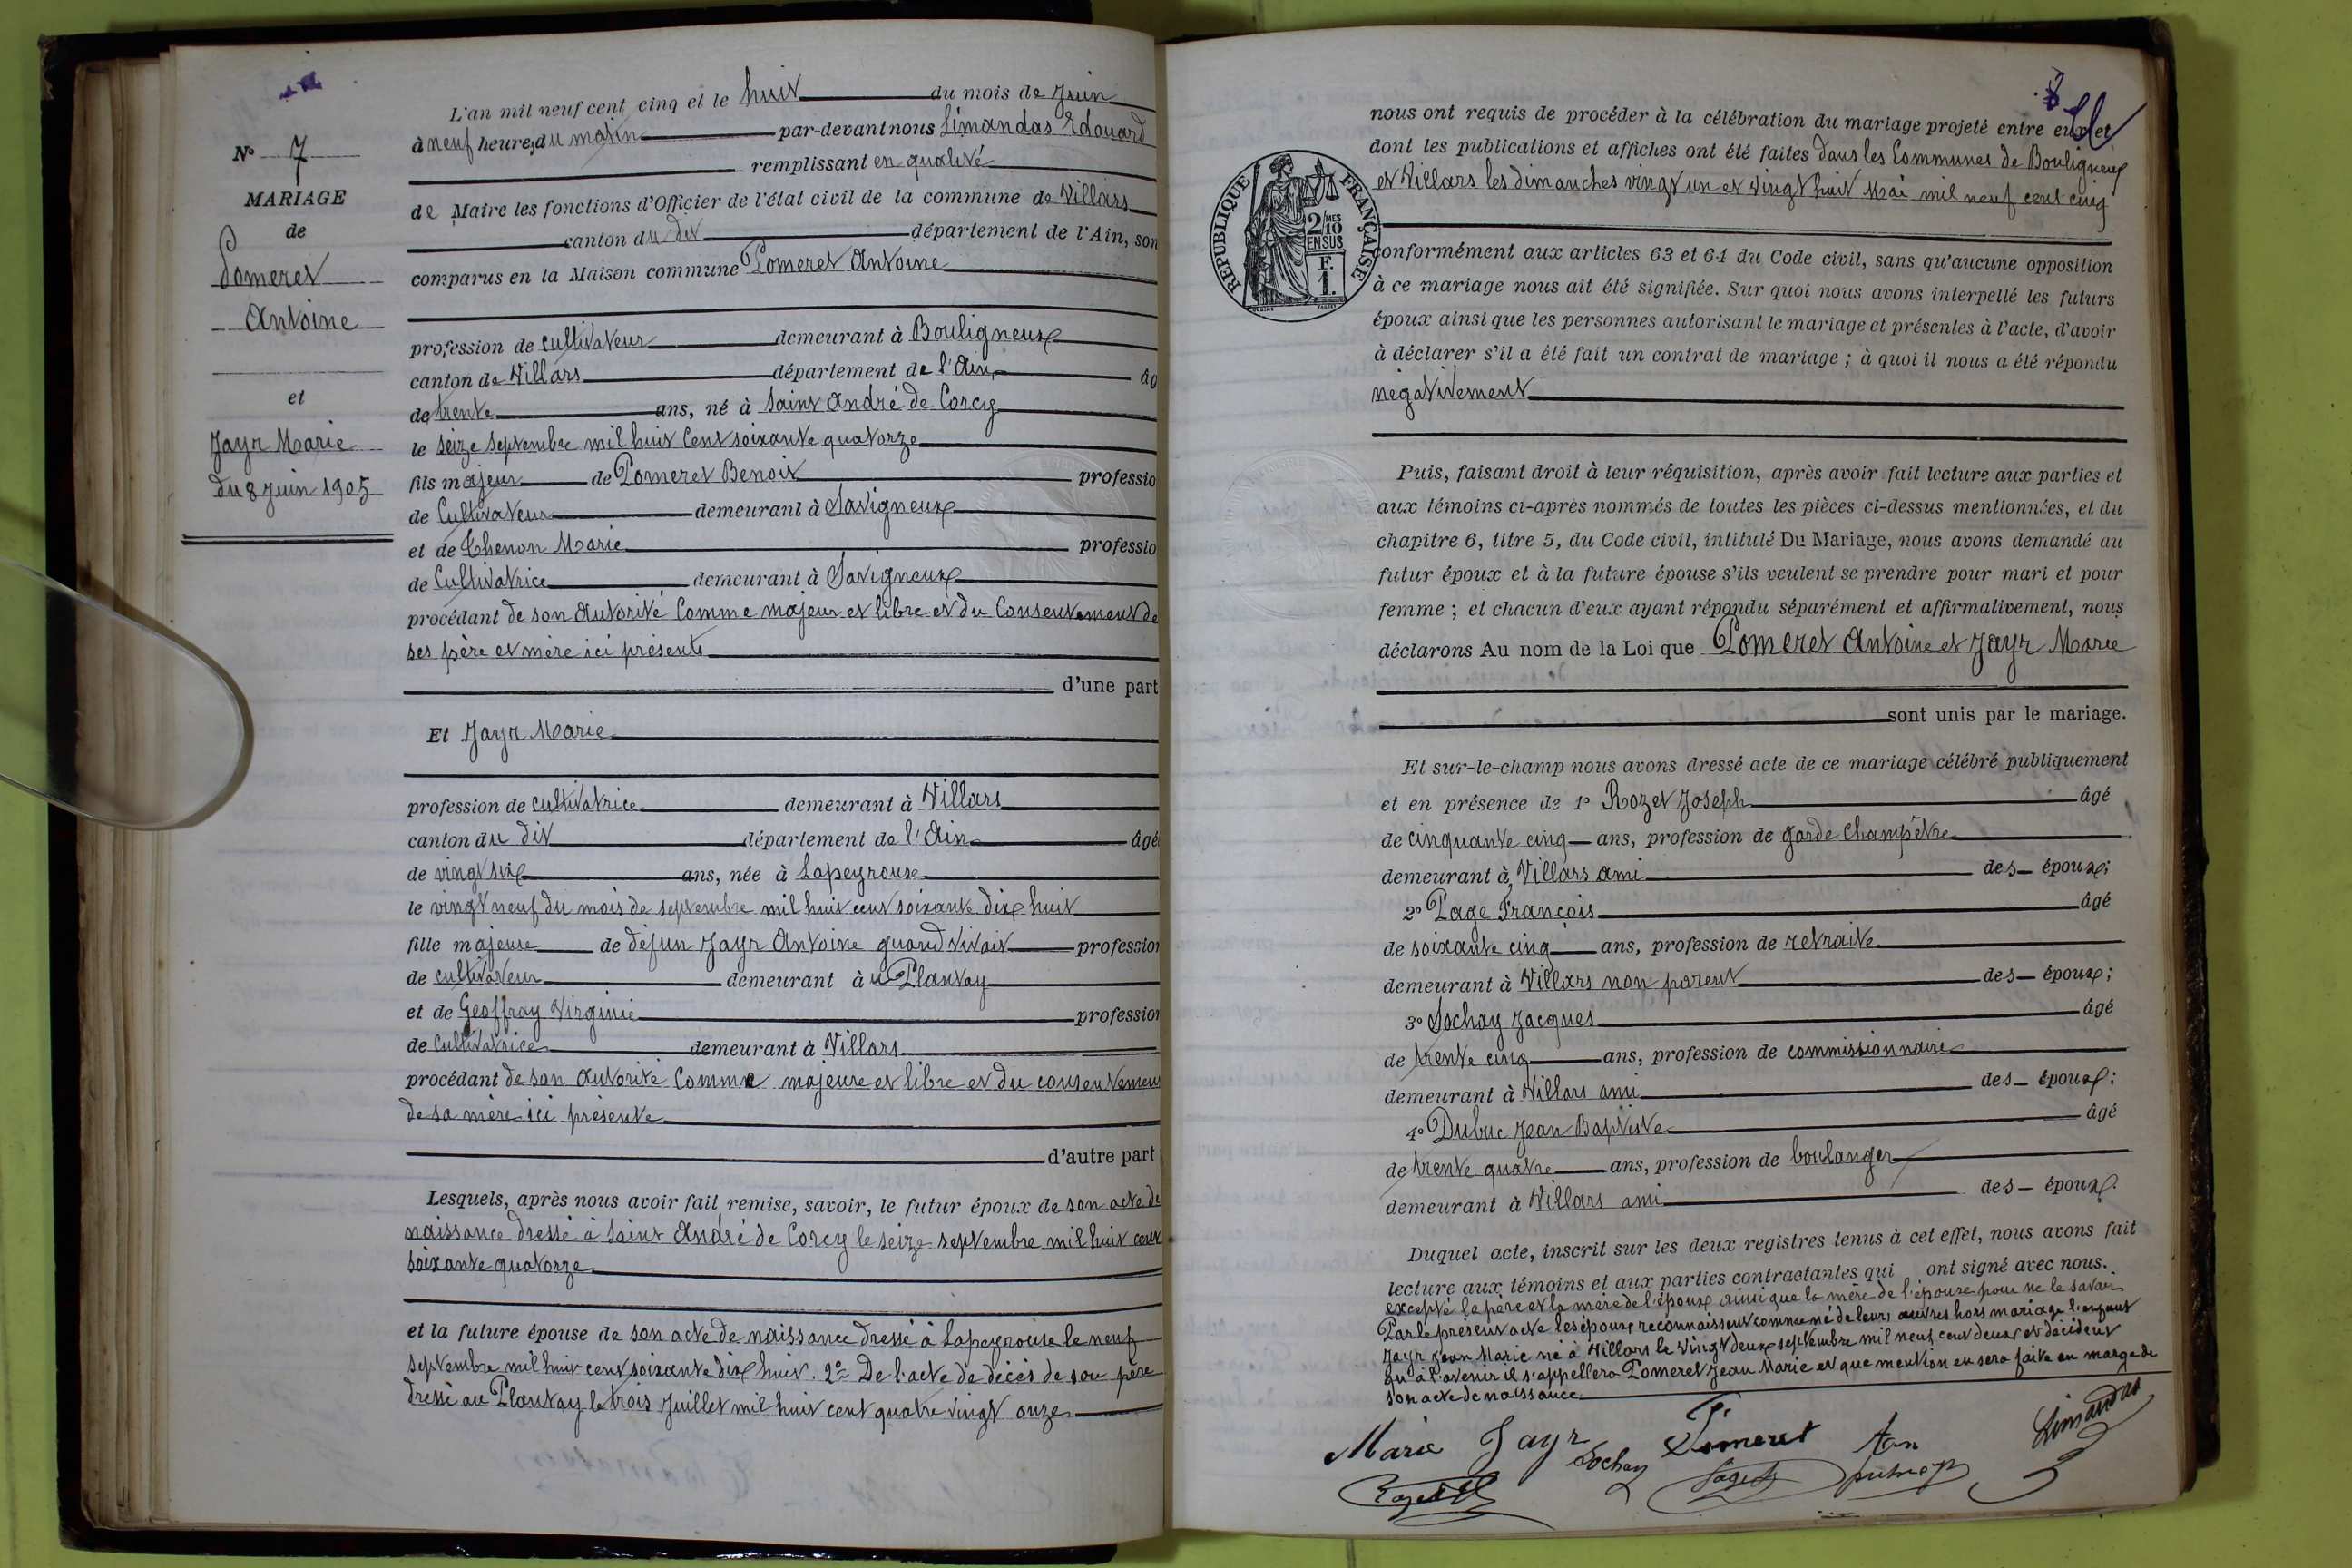 N° 7
MARIAGE
de
Pomeret
Antoine
et
Jayr Marie
du 8 Juin 1905
L'an mil neuf cent cinq et le huit du mois de Juin
à neuf heures du matin par-devant nous Limandas Edouard
remplissant en qualité
de Maire les fonctions d'Officier de l'état civil de la commune de Villars
canton du dit département de l'Ain, son
comparus en la Maison commune Pomeret Antoine
profession de cultivateur demeurant à Bouligneux
canton de Villars département de l'Ain âg
de trente ans, né à Saint André de Corcy
le seize septembre mil huit cent soixante quatorze
fils majeur de Pomeret Benoit professio
de Cultivateur demeurant à Savigneux
et de Thenon Marie professio
de Cultivatrice demeurant à Savigneux
procédant de son autorité comme majeur et libre et du Consentement de
ses père et mère ici présents
d'une part
Et Jayr Marie
profession de cultivatrice demeurant à Villars
canton du dit département de l'Ain âgé
de vingt six ans, née à Lapeyrouse
le vingt neuf du mois de septembre mil huit cent soixante dix huit
fille majeure de défun Jayr Antoine quand vivait profession
de cultivateur demeurant à Plantay
et de Geoffray Virginie profession
de Cultivatrice demeurant à Villars
procédant de son autorité comme majeure et libre et du consentemen
de sa mère ici présente
d'autre part
Lesquels, après nous avoir fait remise, savoir, le futur époux de son acte de
naissance dressé à Saint André de Corcy le seize septembre mil huit cent
soixante quatorze
et la future épouse de son acte de naissance dressé à Lapeyrouse le neuf
septembre mil huit cent soixante dix huit. 2° De l'acte de décès de son père
dressé au Plantay le trois Juillet mil huit cent quatre vingt onze
nous ont requis de procéder à la célébration du mariage projeté entre eux et
dont les publications et affiches ont été faites dans les Communes de Bouligneux
et Villars les dimanches vingt un et vingt huit Mai mil neuf cent cinq
RÉPUBLIQUE FRANÇAISE
2/10 MES
EN SUS
F.
1.
conformément aux articles 63 et 64 du Code civil, sans qu'aucune opposition
à ce mariage nous ait été signifiée. Sur quoi nous avons interpellé les futurs
époux ainsi que les personnes autorisant le mariage et présentes à l'acte, d'avoir
à déclarer s'il a été fait un contrat de mariage ; à quoi il nous a été répondu
négativement
Puis, faisant droit à leur réquisition, après avoir fait lecture aux parties et
aux témoins ci-après nommés de toutes les pièces ci-dessus mentionnées, et du
chapitre 6, titre 5, du Code civil, intitulé Du Mariage, nous avons demandé au
futur époux et à la future épouse s'ils veulent se prendre pour mari et pour
femme ; et chacun d'eux ayant répondu séparément et affirmativement, nous
déclarons Au nom de la Loi que Pomeret Antoine et Jayr Marie
sont unis par le mariage.
Et sur-le-champ nous avons dressé acte de ce mariage célébré publiquement
et en présence de 1° Rozet Joseph âgé
de cinquante cinq ans, profession de garde champêtre
demeurant à Villars ami des époux;
2° Page François âgé
de soixante cinq ans, profession de retraite
demeurant à Villars non parent des époux;
3° Sochay Jacques âgé
de trente cinq ans, profession de commissionnaire
demeurant à Villars ami des époux;
4° Dubuc Jean Baptiste âgé
de trente quatre ans, profession de boulanger
demeurant à Villars ami des époux.
Duquel acte, inscrit sur les deux registres tenus à cet effet, nous avons fait
lecture aux témoins et aux parties contractantes qui ont signé avec nous.
excepté le père et la mère de l'époux ainsi que la mère de l'épouse pour ne le savoir
Par le présent acte les époux reconnaissent comme né de leurs œuvres hors mariage l'enfant
Jayr Jean Marie né à Villars le vingt deux septembre mil neuf cent deux et décident
qu'à l'avenir il s'appellera Pomeret Jean Marie et que mention en sera faite en marge de
son acte de naissance
Marie Jayr Sochay Pomeret Limandas
Rozet Page